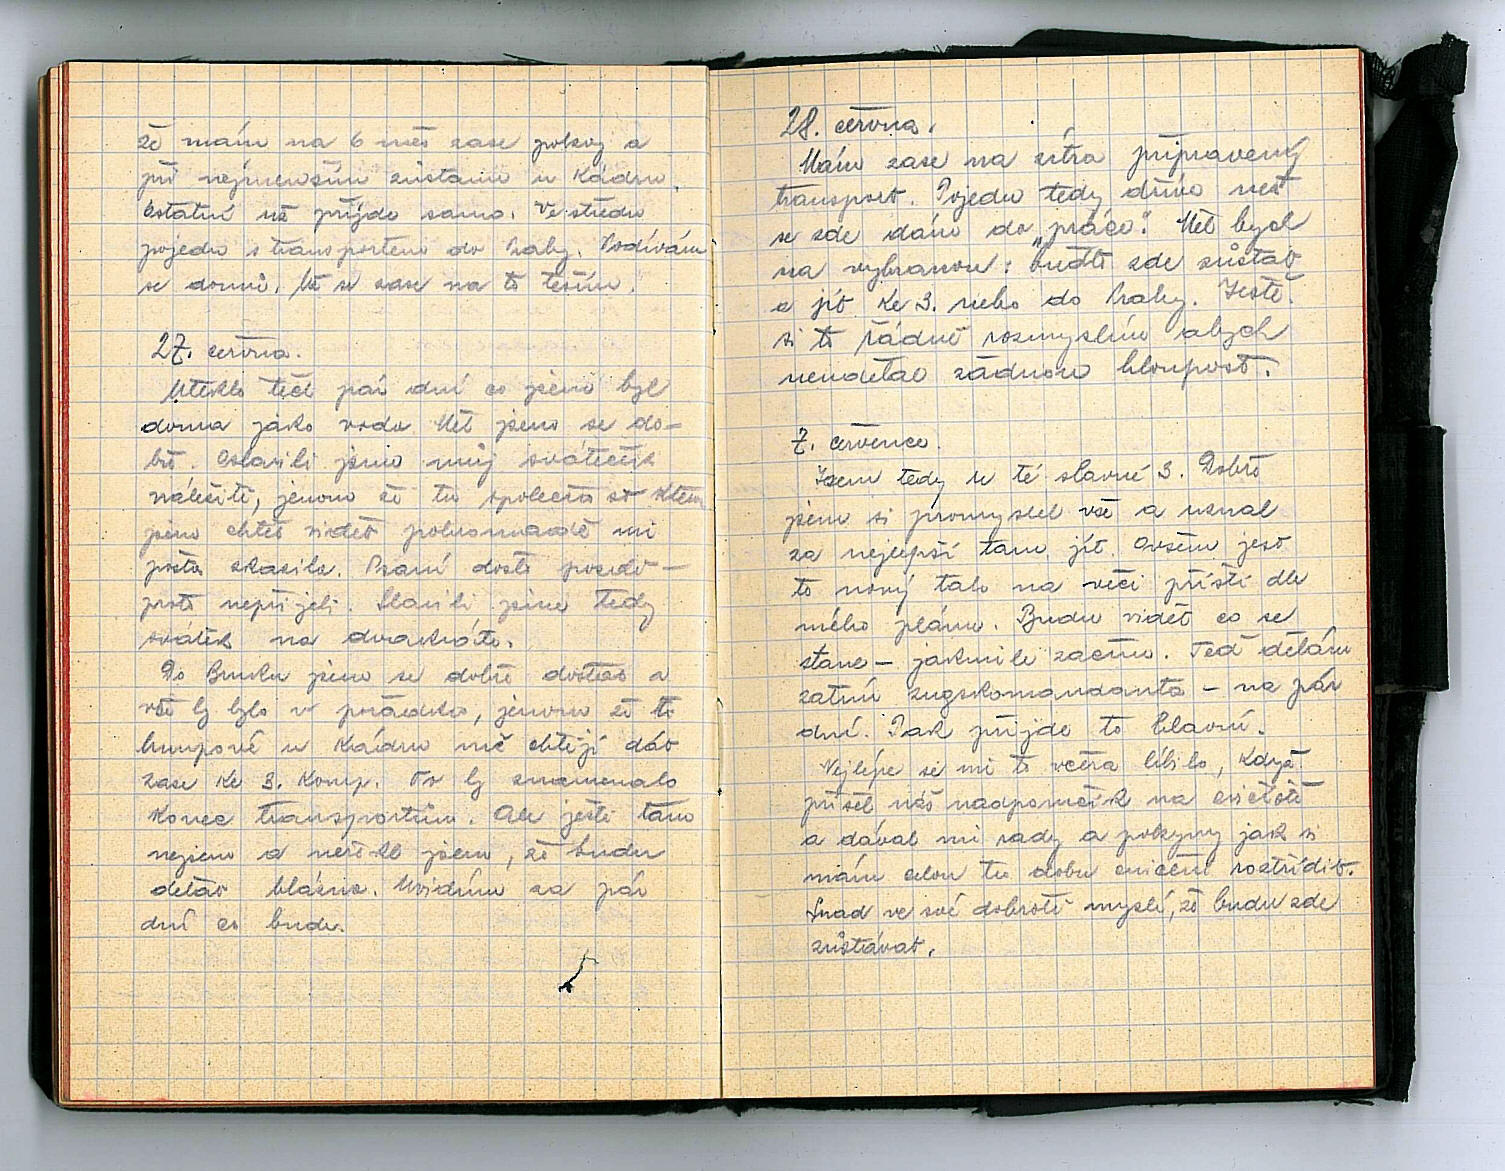 že mám na 6 měs zase pokoj a
při nejmenším zůstanu u Kádru.
Ostatní už přijde samo. Ve středu
pojedu s transportem do Prahy. Podívám
se domů. Už se zase na to těším.
27. června.
Uteklo těch pár dní co jsem byl
doma jako voda. Měl jsem se do-
bře. Oslavili jsme můj sváteček
náležitě, jenom že tu společnost kterou
jsem chtěl vidět pohromadě mi
pošta zkazila. Psaní došlo pozdě –
proto nepřijeli. Slavili jsme tedy
svátek na dvakráte.
Do Brucku jsem se dobře dostal a
vše by bylo v pořádku, jenom že ti
lumpové u Kádru mě chtějí dát
zase ke 3. Komp. To by znamenalo
konec transportům. Ale ještě tam
nejsem a neřekl jsem, že budu
dělat blázna. Uvidím za pár
dní co bude.
28. června.
Mám zase na zítra připravený
transport. Pojedu tedy dříve než
se zde dám do „práce". Měl bych
na vybranou: buďto zde zůstat
a jít ke 3. nebo do Prahy. Ještě
si to řádně rozmyslím abych
neudělal žádnou hloupost.
7. července.
Jsem tedy u té slavné 3. Dobře
jsem si promyslel vše a uznal
za nejlepší tam jít. Ovšem jest
to nový tah na věci příští dle
mého plánu. Budu vidět co se
stane – jakmile začnu. Teď dělám
zatím zugskomandanta – na pár
dní. Pak přijde to hlavní.
Nejlépe se mi to včera líbilo, když
přišel náš nadporučík na cvičiště
a dával mi rady a pokyny jak si
mám celou tu dobu cvičení roztřídit.
Snad ve své dobrotě myslí, že budu zde
zůstávat.